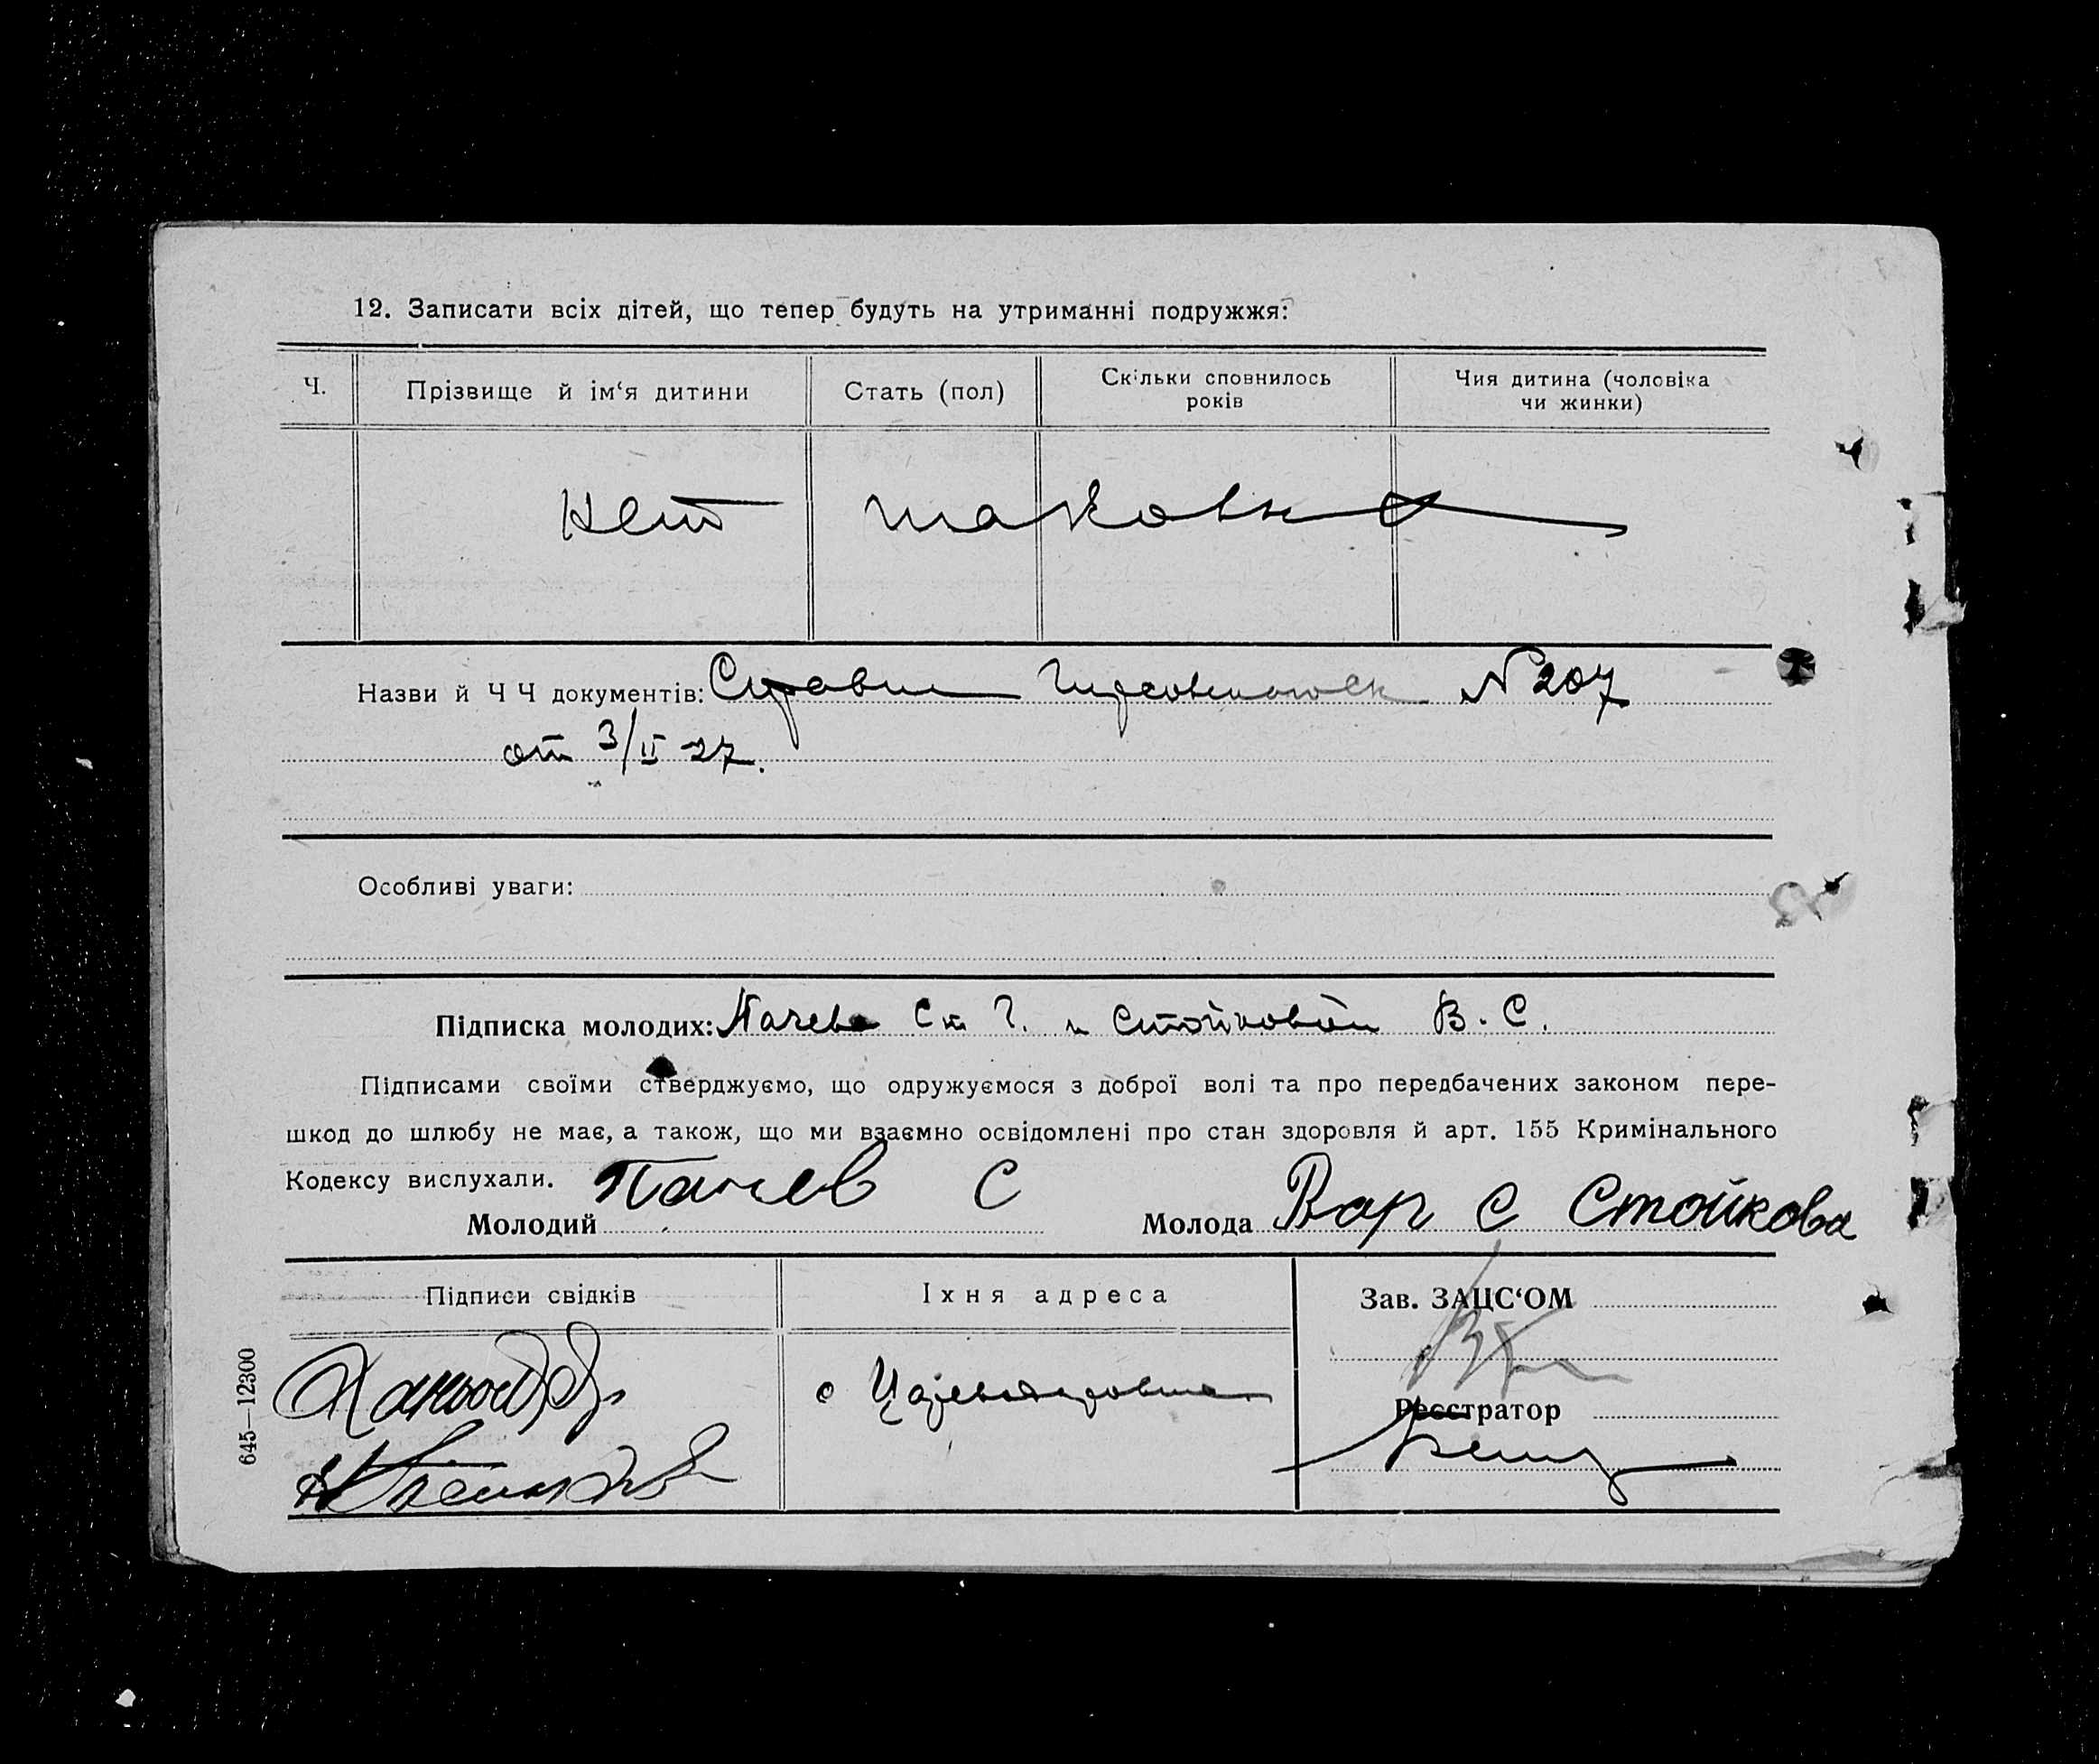 12. Записати всіх дітей, що тепер будуть на утриманні подружжя:
Ч.
Прізвище й ім‘я дитини
Стать (пол)
Скільки сповнилось
років
Чия дитина (чоловіка
чи жинки)
Нет таковых
Назви й Ч Ч документів: N 207
от 3/II 27.
Особливі уваги:
Підписка молодих: Пачева Ст Г. и Стойковой В. С.
Підписами своїми стверджуємо, що одружуємося з доброї волі та про передбачених законом пере-
шкод до шлюбу не має, а також, що ми взаємно освідомлені про стан здоровля й арт. 155 Кримінального
Кодексу вислухали.
Молодий Пачев С
Молода Вар С Стойкова
Підписи свідків
Їхня адреса
Зав. ЗАЦС‘ОМ
с
Реєстратор
645—12300